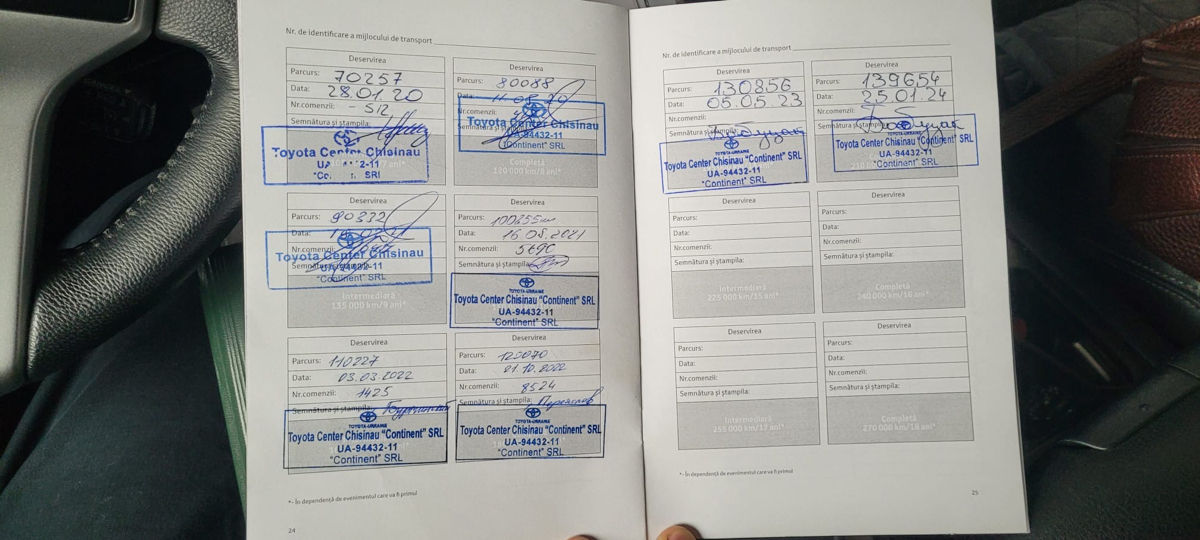 Nr. de identificare a mijlocului de transport
Deservirea
Parcurs: 70257
Data: 28.01.20
Nr.comenzii: - S12
Semnătura și ștampila:
Toyota Center Chisinau
UA- 2-11
SRL
Deservirea
Parcurs: 80088
Data:
Nr.comenzii:
Semnătura și ștampila:
Toyota Center Chisinau
UA-94432-11
"Continent" SRL
Completă
120 000 km/8 ani*
Deservirea
Parcurs: 90332
Data:
Nr.comenzii:
Semnătura și ștampila:
Toyota Center Chisinau
UA-94432-11
"Continent" SRL
Intermediară
135 000 km/9 ani*
Deservirea
Parcurs: 100255км
Data: 16.08.2021
Nr.comenzii: 5690
Semnătura și ștampila:
TOYOTA-UKRAINE
Toyota Center Chisinau "Continent" SRL
UA-94432-11
"Continent" SRL
Deservirea
Parcurs: 110227
Data: 03.03.2022
Nr.comenzii: 1425
Semnătura și ștampila:
TOYOTA-UKRAINE
Toyota Center Chisinau "Continent" SRL
UA-94432-11
"Continent" SRL
Deservirea
Parcurs: 120070
Data: 01.10.2022
Nr.comenzii: 8524
Semnătura și ștampila:
TOYOTA-UKRAINE
Toyota Center Chisinau "Continent" SRL
UA-94432-11
"Continent" SRL
*- În dependență de evenimentul care va fi primul
24
Nr. de identificare a mijlocului de transport
Deservirea
Parcurs: 130856
Data: 05.05.23
Nr.comenzii:
Semnătura și ștampila:
TOYOTA-UKRAINE
Toyota Center Chisinau "Continent" SRL
UA-94432-11
"Continent" SRL
Deservirea
Parcurs: 139654
Data: 25.01.24
Nr.comenzii:
Semnătura și ștampila:
TOYOTA-UKRAINE
Toyota Center Chisinau "Continent" SRL
UA-94432-11
"Continent" SRL
Deservirea
Parcurs:
Data:
Nr.comenzii:
Semnătura și ștampila:
Intermediară
225 000 km/15 ani*
Deservirea
Parcurs:
Data:
Nr.comenzii:
Semnătura și ștampila:
Completă
240 000 km/16 ani*
Deservirea
Parcurs:
Data:
Nr.comenzii:
Semnătura și ștampila:
Intermediară
255 000 km/17 ani*
Deservirea
Parcurs:
Data:
Nr.comenzii:
Semnătura și ștampila:
Completă
270 000 km/18 ani*
*- În dependență de evenimentul care va fi primul
25